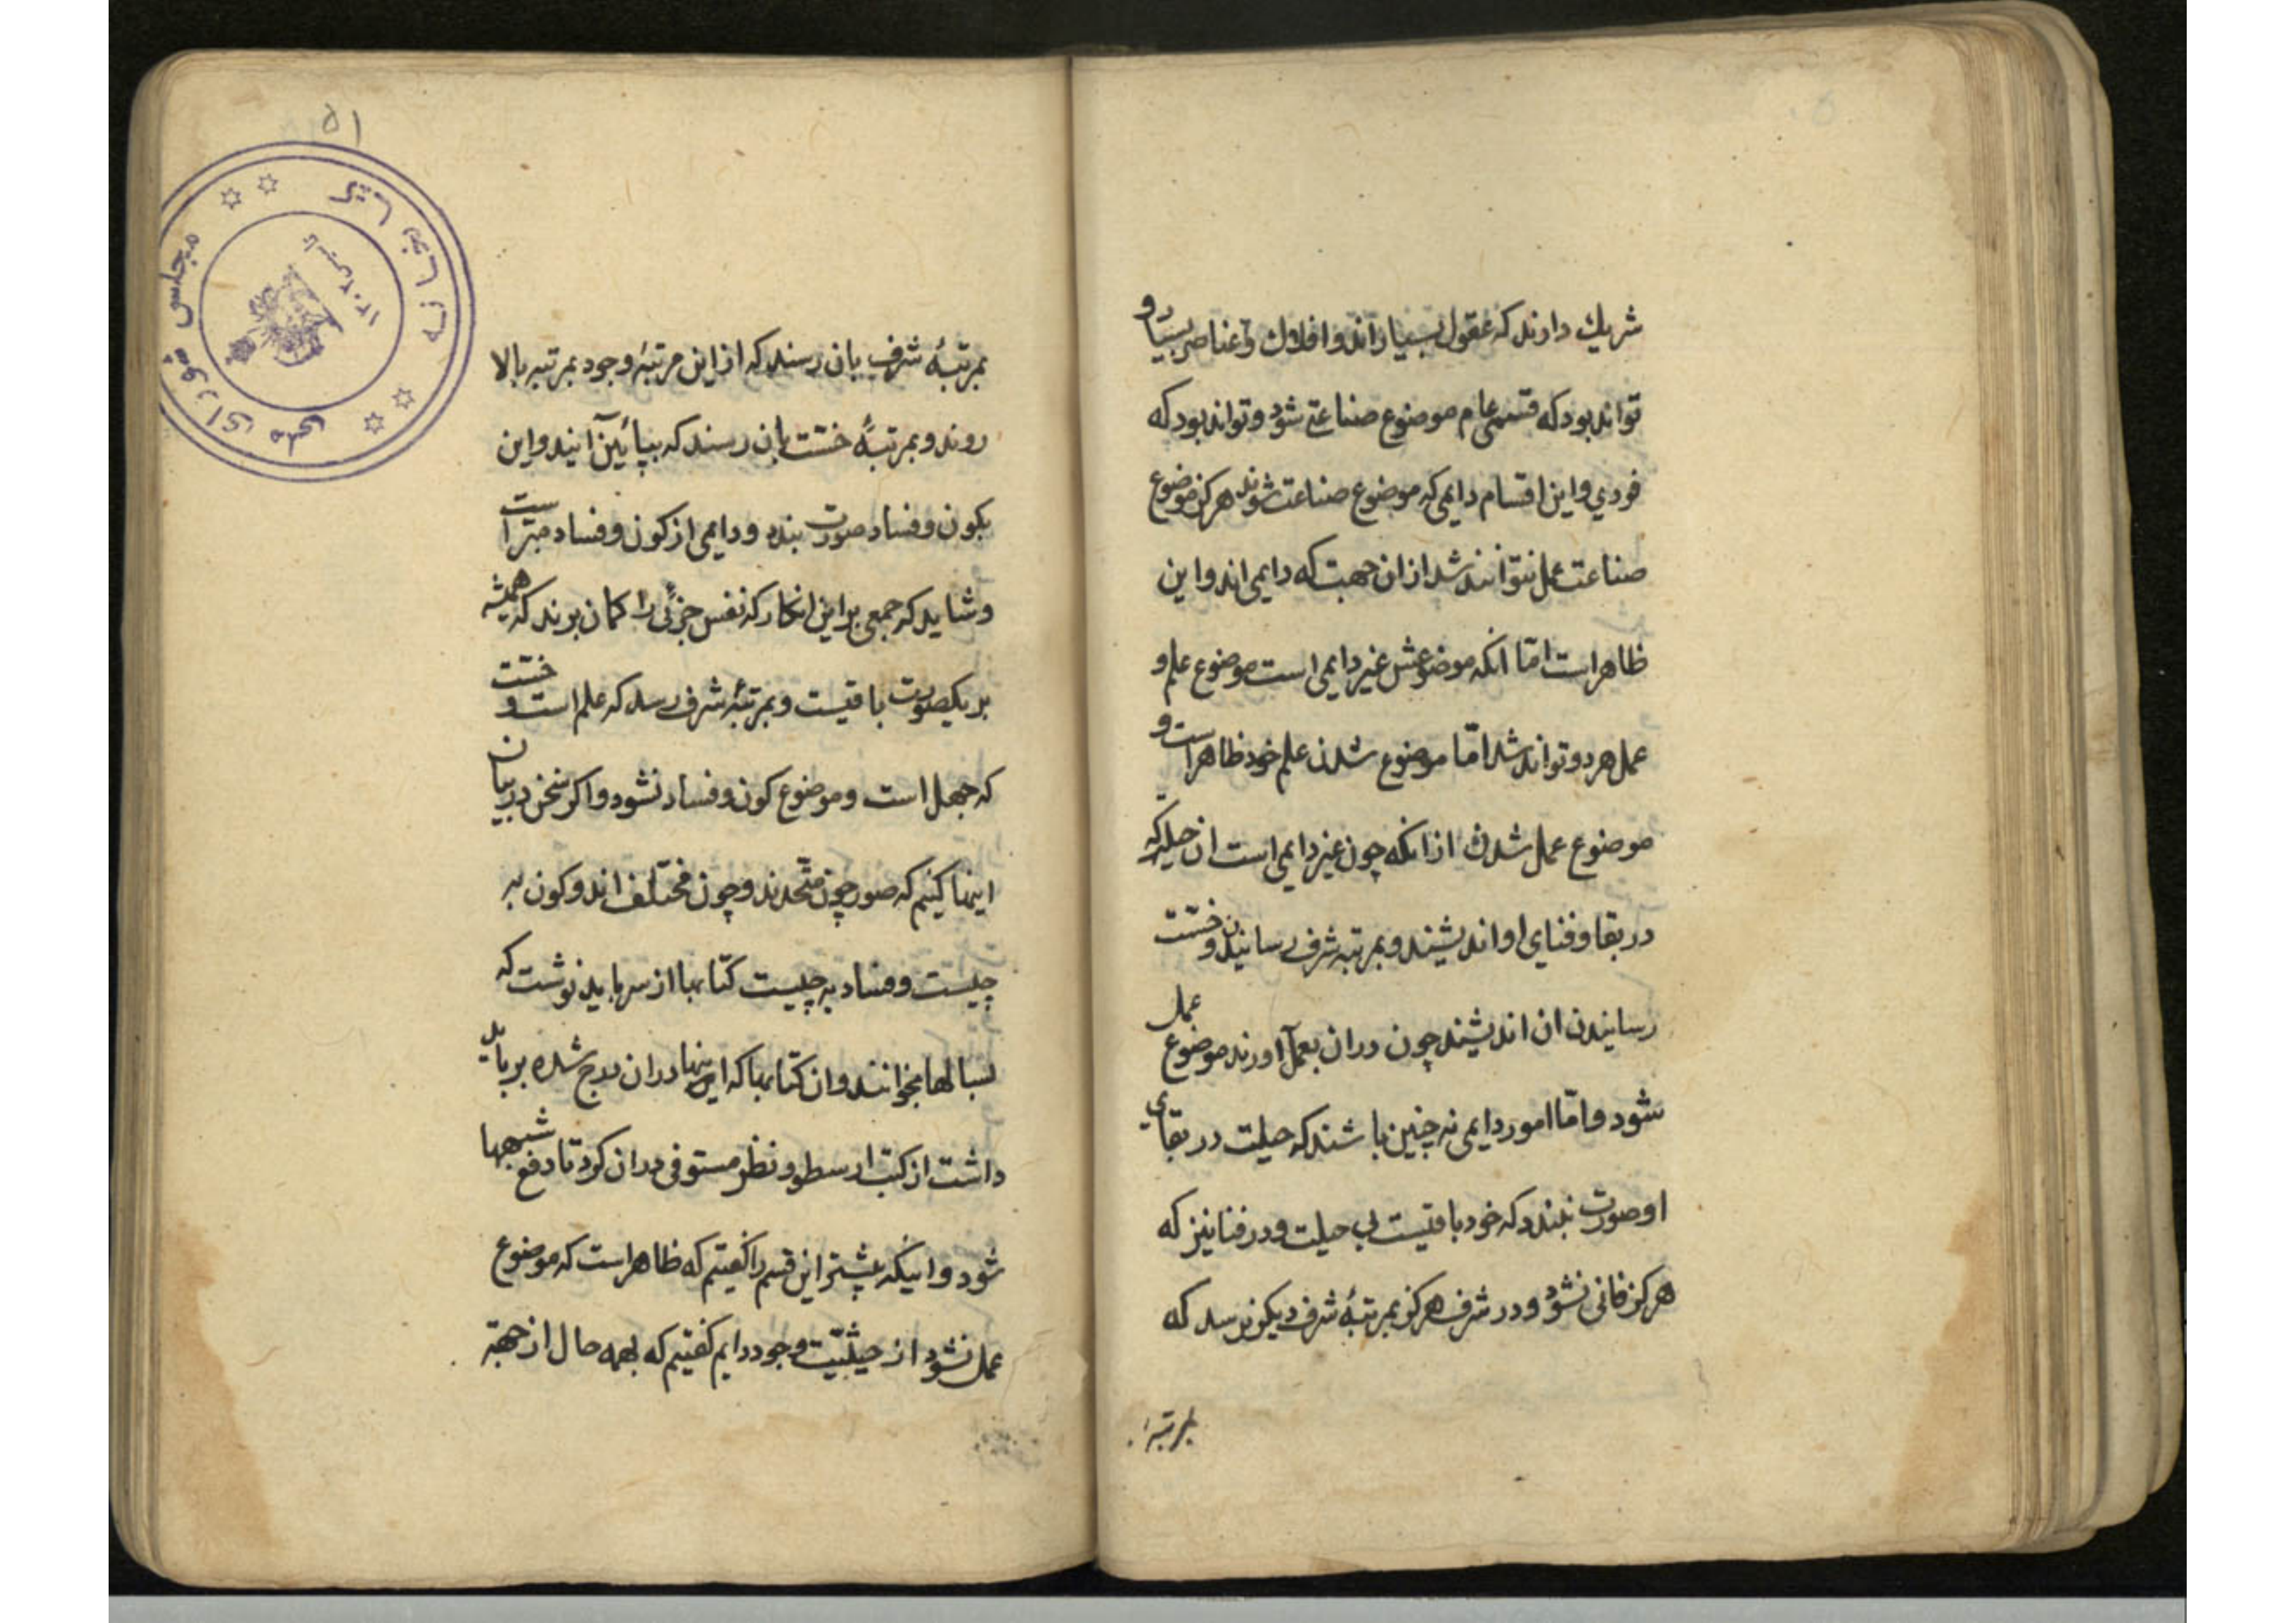 شریك دارند که عقول بسیار اند و افلاك و عناصر بسیار و
تواند بود که قسمی عام موضوع صناعتی شود و تواند بود که
فردي و این اقسام دایمی که موضوع صناعت شوند هرکز موضوع
صناعت عمل نتوانند شد از ان جهت که دایمی اند و این
ظاهر است امّا انکه موضوعش غیر دایمی است موضوع علم و
عمل هر دو تواند شد امّا موضوع شدن علم خود ظاهر است و
موضوع عمل شدن از انکه چون غیر دایمی است ان حیله که
در بقا و فنای او اندیشند و بمرتبه شرف رسانیدن و خسّت
رسانیدن ان اندیشند چون دران بعمل آورند موضوع عمل
شود و امّا امور دایمی نه چنین باشند که حیلت در بقای
او صورت بندد که خود باقیست بی حیلت و در فنا نیز که
هرکز فانی نشود و در شرف هرکز بمرتبهٔ شرف دیکر نرسد که
بمرتبهٔ
۵۱
کتابخانه مجلس شورای ملی
تاسیس ۱۳۰۲
بمرتبهٔ شرف بان رسند که از این مرتبهٔ وجود بمرتبه بالا
روند و بمرتبهٔ خسّت بان رسند که بپائین آیند و این
بکون و فساد صورت بندد و دایمی از کون و فساد مبرّاست
و شاید که جمعی بر این انکار که نفس جزئی را کمان برند که همیشه
بر یکصورت باقیست و بمرتبهٔ شرف رسد که علم است و خسّت
که جهل است و موضوع کون و فساد نشود و اکر سخن در بیان
اینها کنیم که صور چون متّحدند و چون مختلف اند و کون به
چیست و فساد به چیست کتابها از سر باید نوشت که
بسالها بخوانند و ان کتابها که اینها دران درج شده بر باید
داشت از کتب ارسطو و نظر مستوفی دران کرد تا دفع شبهها
شود و اینکه پیشتر این قسم را کفتیم که ظاهر است که موضوع
عمل نشود از حیثیّت وجود دایم کفتیم که بهمه حال از جهة